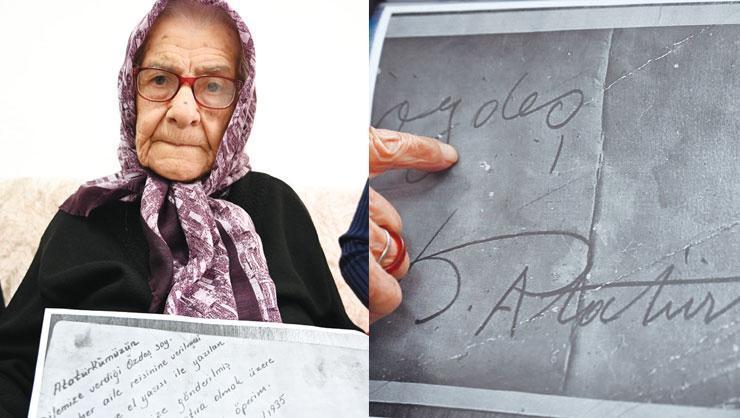 Atatürkümüzün
ilemize verdiği Özdeş soy.
her aile reisinine verilmesi
e el yazısı ile yazılan
ze gönderilmiş
tıra olmak üzere
öperim.
1935
özdeş
K. Atatür